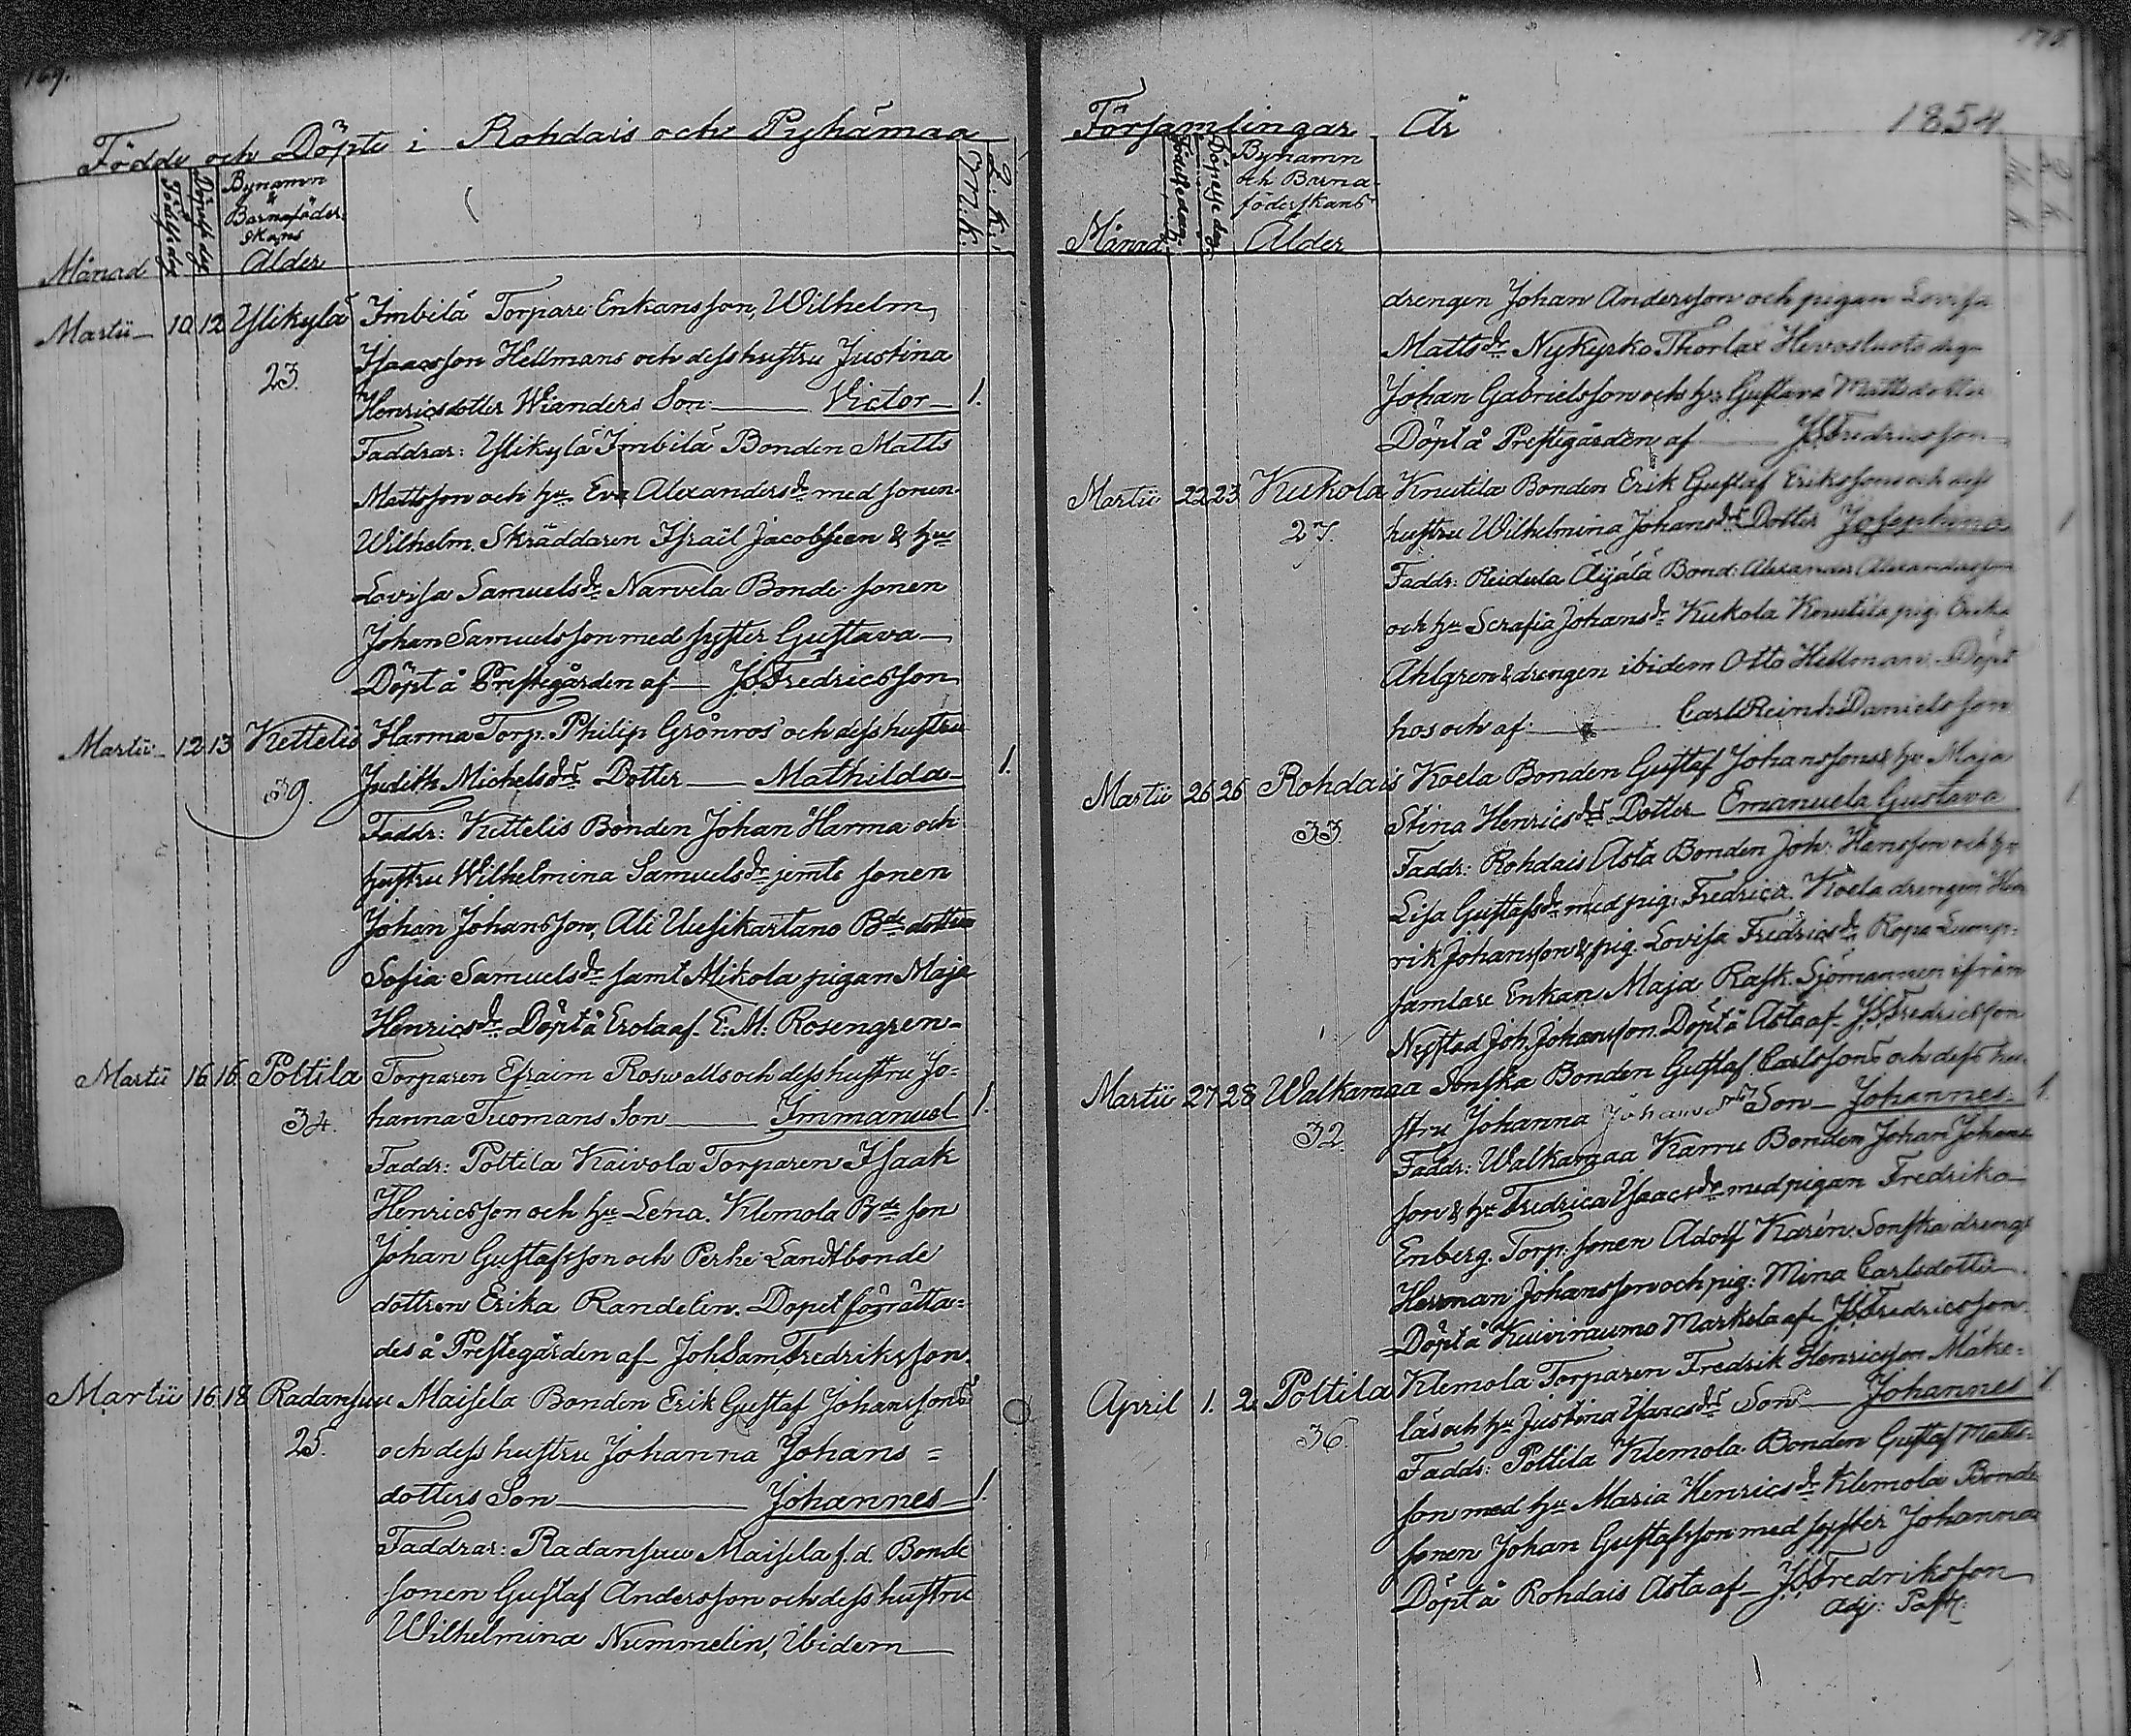 169.
Födde och Döpte i Rohdais och Pyhämaa
Månad
Födelse dag
Döpelse dag
Bynamn
&
Barnaföder-
skans
Ålder
M. K.
Q. K.
Martii 10 12 Ylikylä Imbilä Torpare Enkans son, Wilhelm
23. Isaacsson Hellmans och dess hustru Justina
Henricsdotter Wianders Son Victor 1.
Faddrar: Ylikylä Imbilä Bonden Matts
Mattsson och hu Eva Alexandersdr med sonen
Wilhelm. Skräddaren Israël Jacobsson & hu
Lovisa Samuelsdr Narvela Bonde sonen
Johan Samuelsson med syster Gustava
Döpt å Prestegården af JSFredricsson
Martii 12 13 Kettelis Harma Torp. Philip Grönros' och dess hustru
39. Judith Michelsdrs Dotter Mathilda 1.
Faddr: Kettelis Bonden Johan Harma och
hustru Wilhelmina Samuelsdr jemte sonen
Johan Johansson, Ali Uusikartano Bde dottren
Sofia Samuelsdr samt Mikola pigan Maja
Henricsdr Döpt å Erola af E: M: Rosengren
Martii 16 16 Poltila Torparen Efraim Roswalls och dess hustru Jo=
34. hanna Tuomans Son Immanuel 1.
Faddr: Poltila Kaivola Torparen Isaak
Henricsson och hu Lena. Klemola Bde son
Johan Gustafsson och Perhe Landtbonde
dottren Erika Randelin. Dopet förrätta=
des å Prestegården af JohSamFredriksson.
Martii 16 18 Radansuu Maisela Bonden Erik Gustaf Johanssons
25. och dess hustru Johanna Johans=
dotters Son Johannes 1.
Faddrar: Radansuu Maisela f.d. Bonde
sonen Gustaf Andersson och dess hustru
Wilhelmina Nummelin, Ibidem
Församlingar År 1854
Månad
Födelsedag
Döpelse dag
Bynamn
och Barna-
föderskans
Ålder
M. K.
Q. K.
drengen Johan Andersson och pigan Lovisa
Mattsdr Nykyrko Thorlax Hevosluoto
Johan Gabrielsson och hu Gustava Mattsdotter
Döpt å Prestegården af JSFredricsson
Martii 22 23 Kukola Knutila Bonden Erik Gustaf Erikssons och dess
27. hustru Wilhelmina Johansdrs Dotter Josephina 1
Faddr: Reidula Äijälä Bond: Alexander Alexandersson
och hu Serafia Johansdr Kukola Knutila pig. Erika
Ahlgren & drengen ibidem Otto Hellman. Döpt
hos och af Carl Reinh: Danielsson
Martii 26 26 Rohdais Koela Bonden Gustaf Johanssons & hu Maja
33. Stina Henricsdrs Dotter Emanuela Gustava 1
Faddr: Rohdais Asta Bonden Joh: Hansson och hu
Lisa Gustafsdr med pig: Fredrica. Koela drengen Hen
rik Johansson & pig. Lovisa Fredricsdr Ropa Lump=
samlare Enkan Maja Rask. Sjömannen ifrån
Nystad Joh. Johansson. Döpt å Asta af JSFredricsson
Martii 27 28 Walkamaa Sonska Bonden Gustaf Carlssons och dess hu
32. stru Johanna Johansdrs Son Johannes 1.
Faddr: Walkamaa Karru Bonden Johan Johans
son & hu Fredrica Isaacsdr med pigan Fredrika
Enberg. Torp: sonen Adolf Karén. Sonska dreng:
Herman Johansson och pig: Mina Carlsdotter
Döpt å Kuiviraumo Markula af JSFredricsson
April 1. 2. Poltila Klemola Torparen Fredrik Henricsson Mäke=
36. läs och hu Justina Isaacsdrs Son Johannes 1.
Faddr: Poltila Klemola Bonden Gustaf Matts=
son med hu Maria Henricsdr Klemola Bonde
sonen Johan Gustafsson med syster Johanna
Döpt å Rohdais Asta af JSFredriksson
Adj: Past: